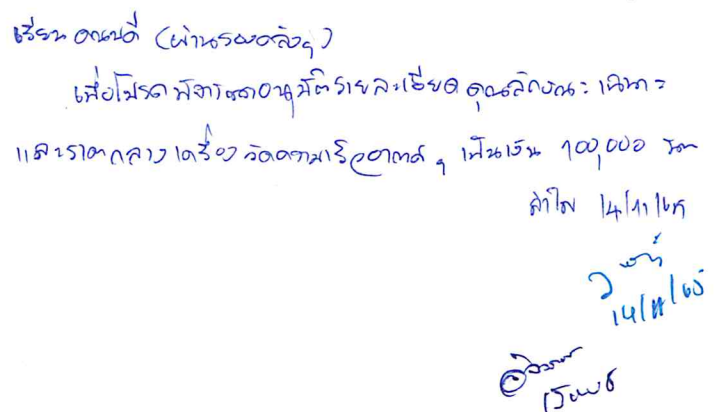 เรียน คณบดี (ผ่านรองคลังฯ)
เพื่อโปรดพิจารณาอนุมัติรายละเอียดคุณลักษณะเฉพาะ
และราคากลางเครื่องวัดความเร็วอากาศฯ เป็นเงิน 100,000 บาท
ลำไย 14/11/65
14/11/65